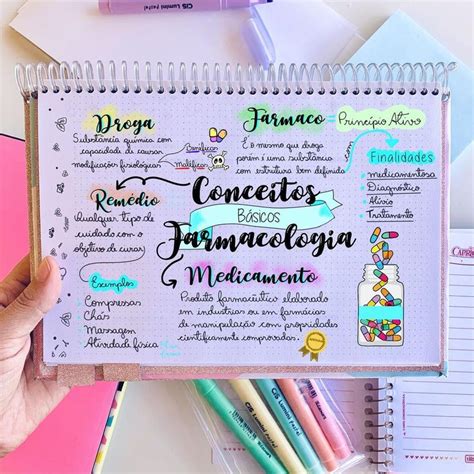 CiS Lumini Pastel
Droga
Substância química com
capacidade de causar
modificações fisiológicas
Benéficas
Maléficas
Fármaco = Princípio Ativo
É o mesmo que droga
porém é uma substância
com estrutura bem definida
Finalidades
medicamentosa
Diagnóstico
Alívio
Tratamento
Remédio
Qualquer tipo de
cuidado com o
objetivo de curar
Exemplos
Compressas
Chás
Massagem
Atividade física
Conceitos
Básicos
Farmacologia
Medicamento
Produto farmacêutico elaborado
em indústrias ou em farmácias
de manipulação com propridades
cientificamente comprovadas.
CiS Lumini Pastel